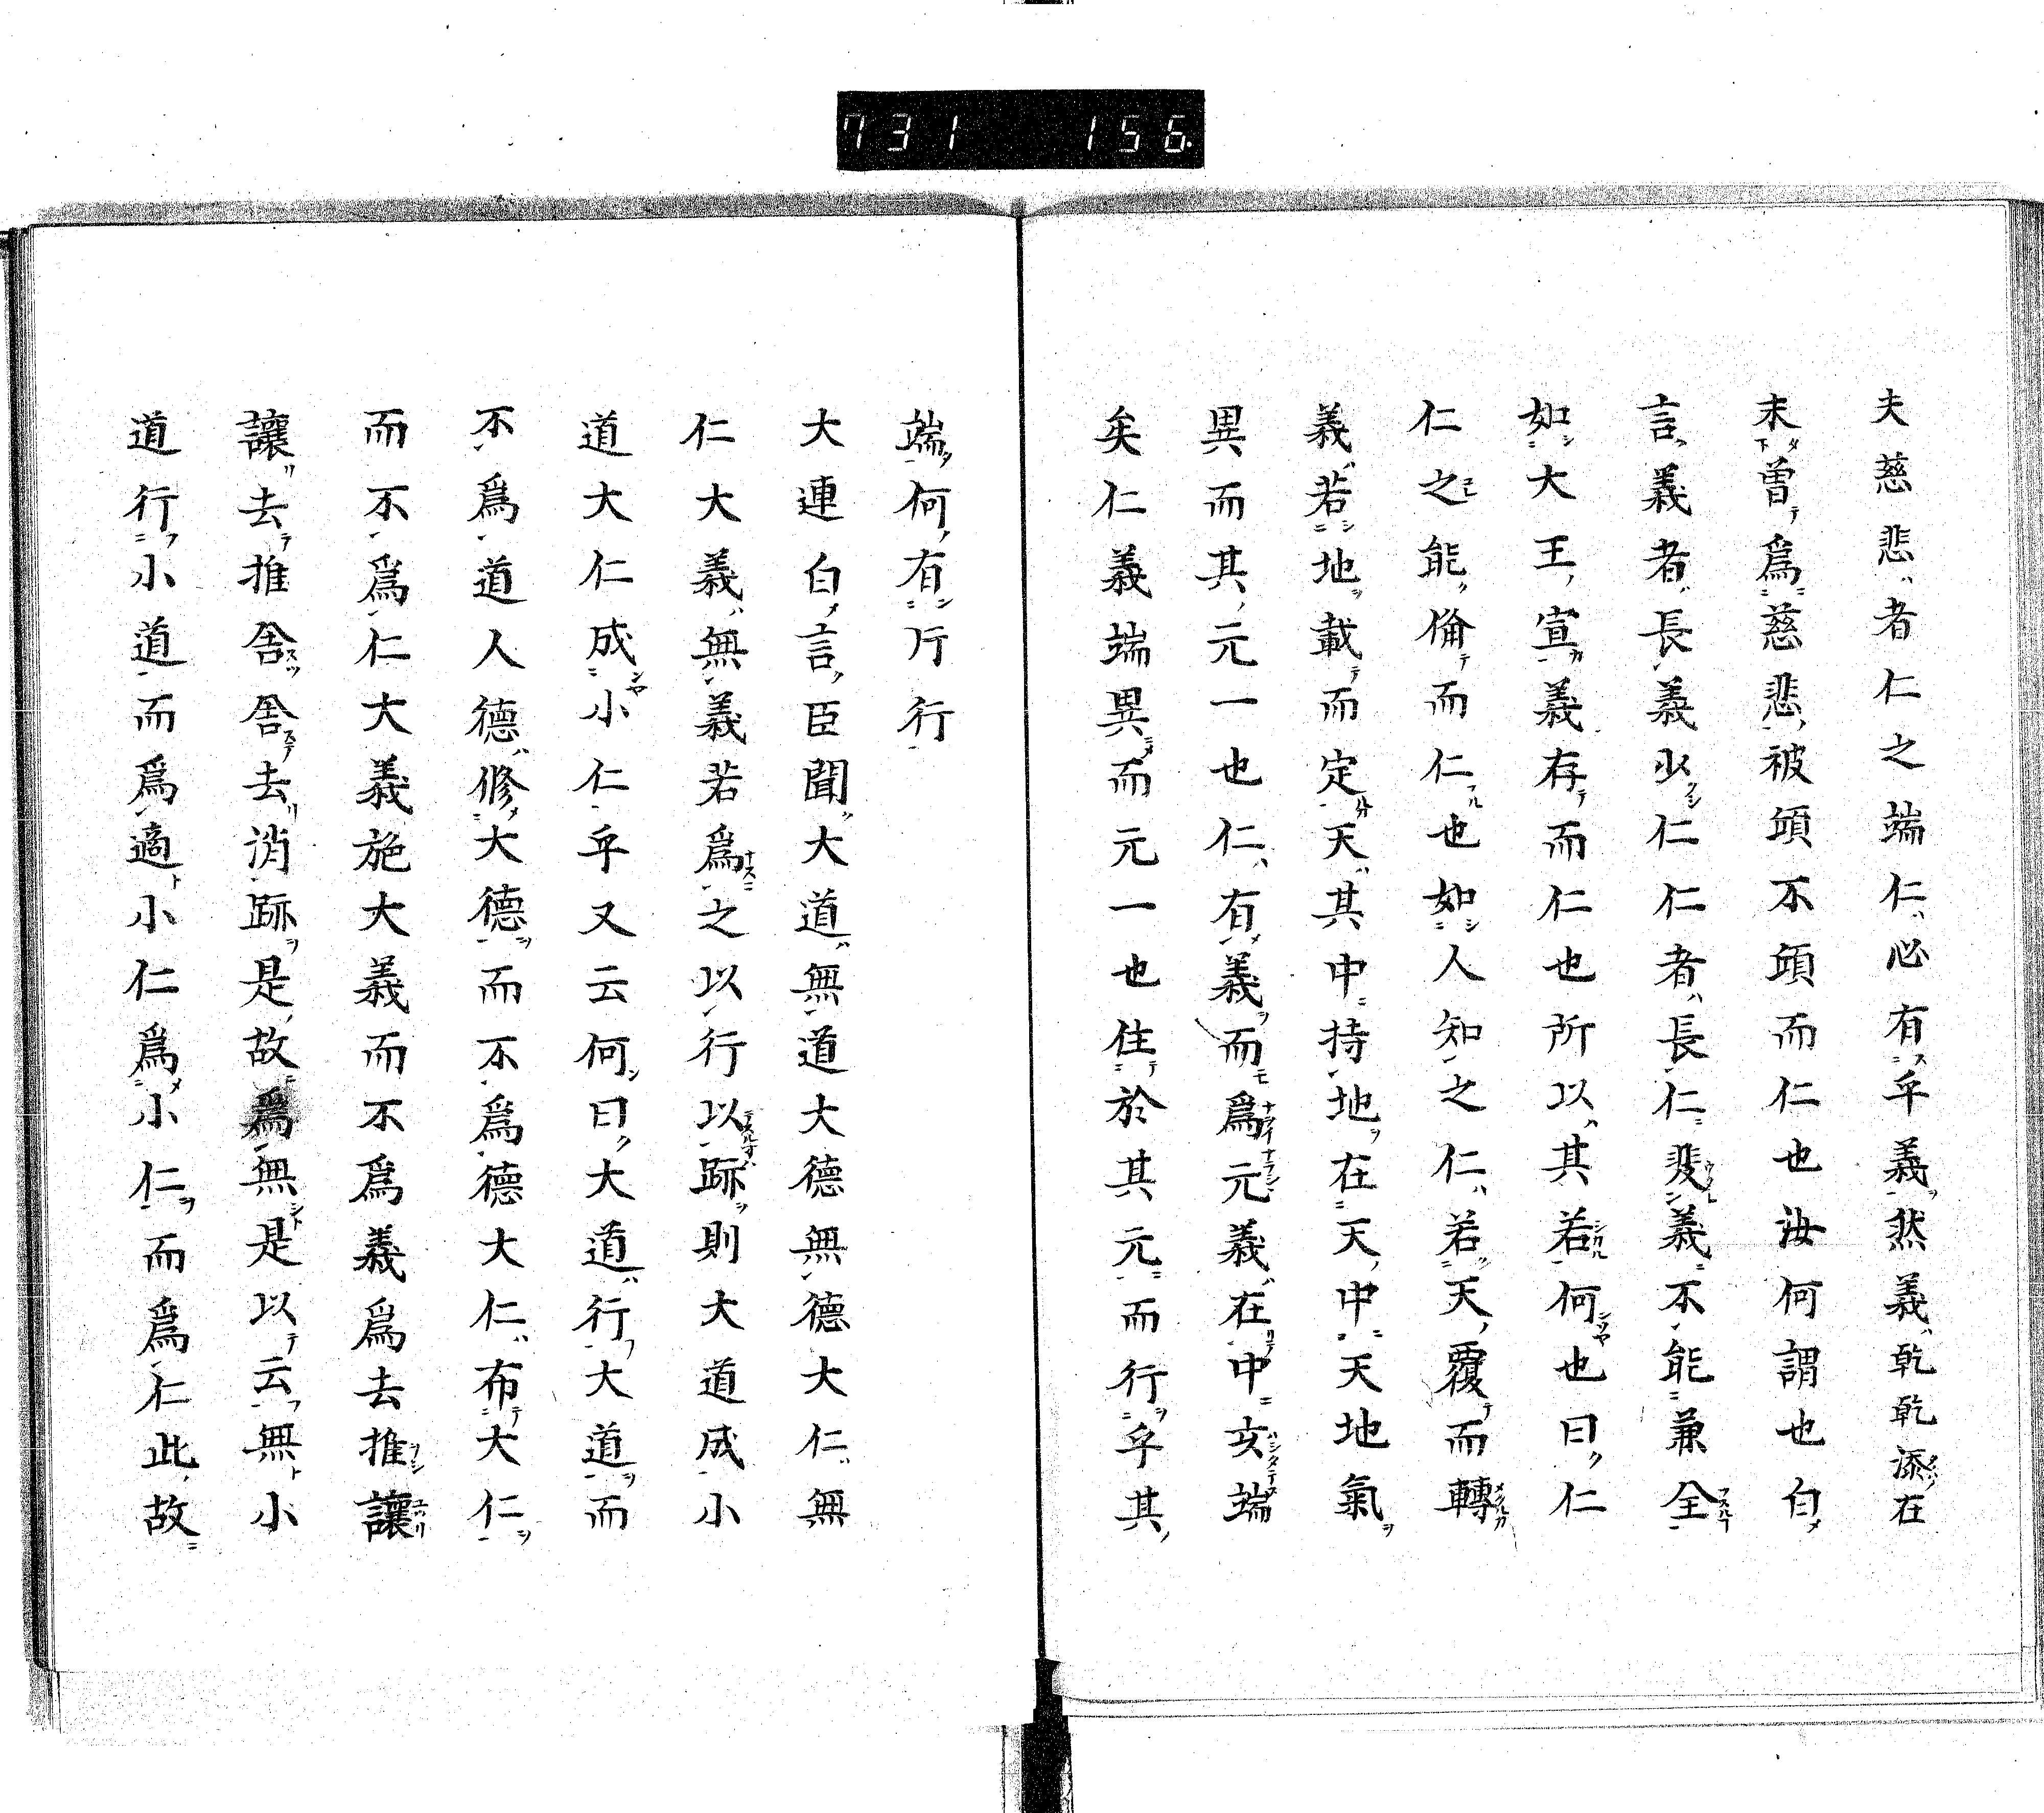 731 156.
夫慈悲者仁之端仁必有乎義然義乾乾添在
末曽爲慈悲被頭不頭而仁也汝何謂也白
言義者長義少仁仁者長仁義不能兼全
如大王宣義存而仁也所以其若何也曰仁
仁之能備而仁也如人知之仁若天覆而轉
義若地載而定天其中持地在天中天地氣
異而其元一也仁有義而爲元義在中支端
矣仁義端異而元一也住於其元而行乎其
端何有行行
大連白言臣聞大道無道大德無德大仁無
仁大義無義若爲之以行以跡則大道成小
道大仁成小仁乎又云何曰大道行大道而
不爲道人德修大德而不爲德大仁布大仁
而不爲仁大義施大義而不爲義爲去推讓
讓去推舍舍去消跡是故爲無是以云無小
道行小道而爲適小仁爲小仁而爲仁此故